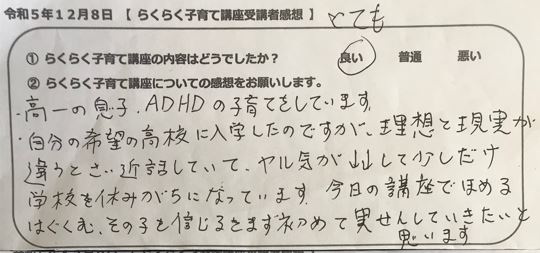 令和5年12月8日 【 らくらく子育て講座受講者感想 】 とても
① らくらく子育て講座の内容はどうでしたか? 良い 普通 悪い
② らくらく子育て講座についての感想をお願いします。
・高一の息子、ADHDの子育てをしています。
・自分の希望の高校に入学したのですが、理想と現実が
違うとさい近話していて、ヤル気が出して少しだけ
学校を休みがちになっています。今日の講座でほめる
はぐくむ、その子を信じるをまず初めて実せんしていきたいと
思います